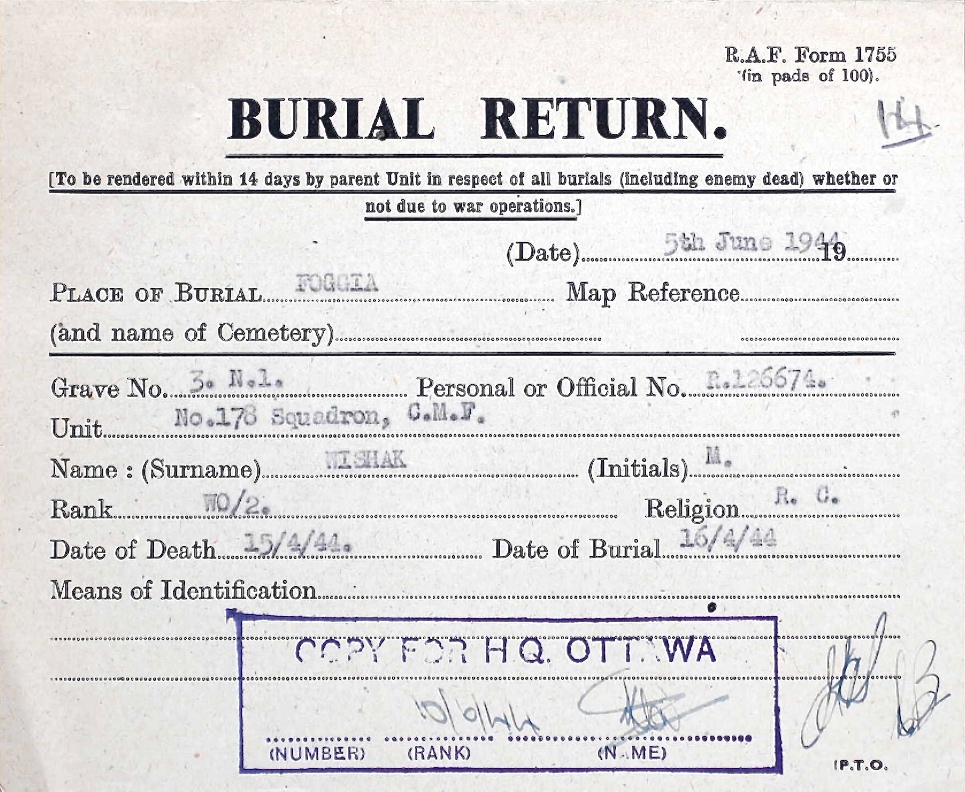 R.A.F. Form 1755
(in pads of 100).
14
BURIAL RETURN.
[To be rendered within 14 days by parent Unit in respect of all burials (including enemy dead) whether or
not due to war operations.]
(Date) 5th June 1944 19
PLACE OF BURIAL FOGGIA Map Reference
(and name of Cemetery)
Grave No. 3. N.1. Personal or Official No. R.126674.
Unit No.178 Squadron, C.M.F.
Name : (Surname) WISHAK (Initials) M.
Rank WO/2. Religion R. C.
Date of Death 15/4/44. Date of Burial 16/4/44
Means of Identification
COPY FOR H.Q. OTTAWA
(NUMBER) (RANK) (NAME)
P.T.O.